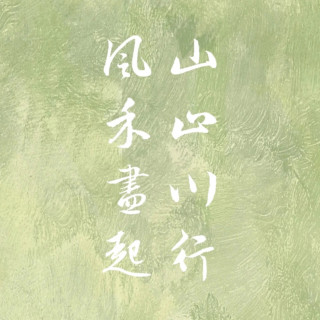 山止川行
风禾盡起